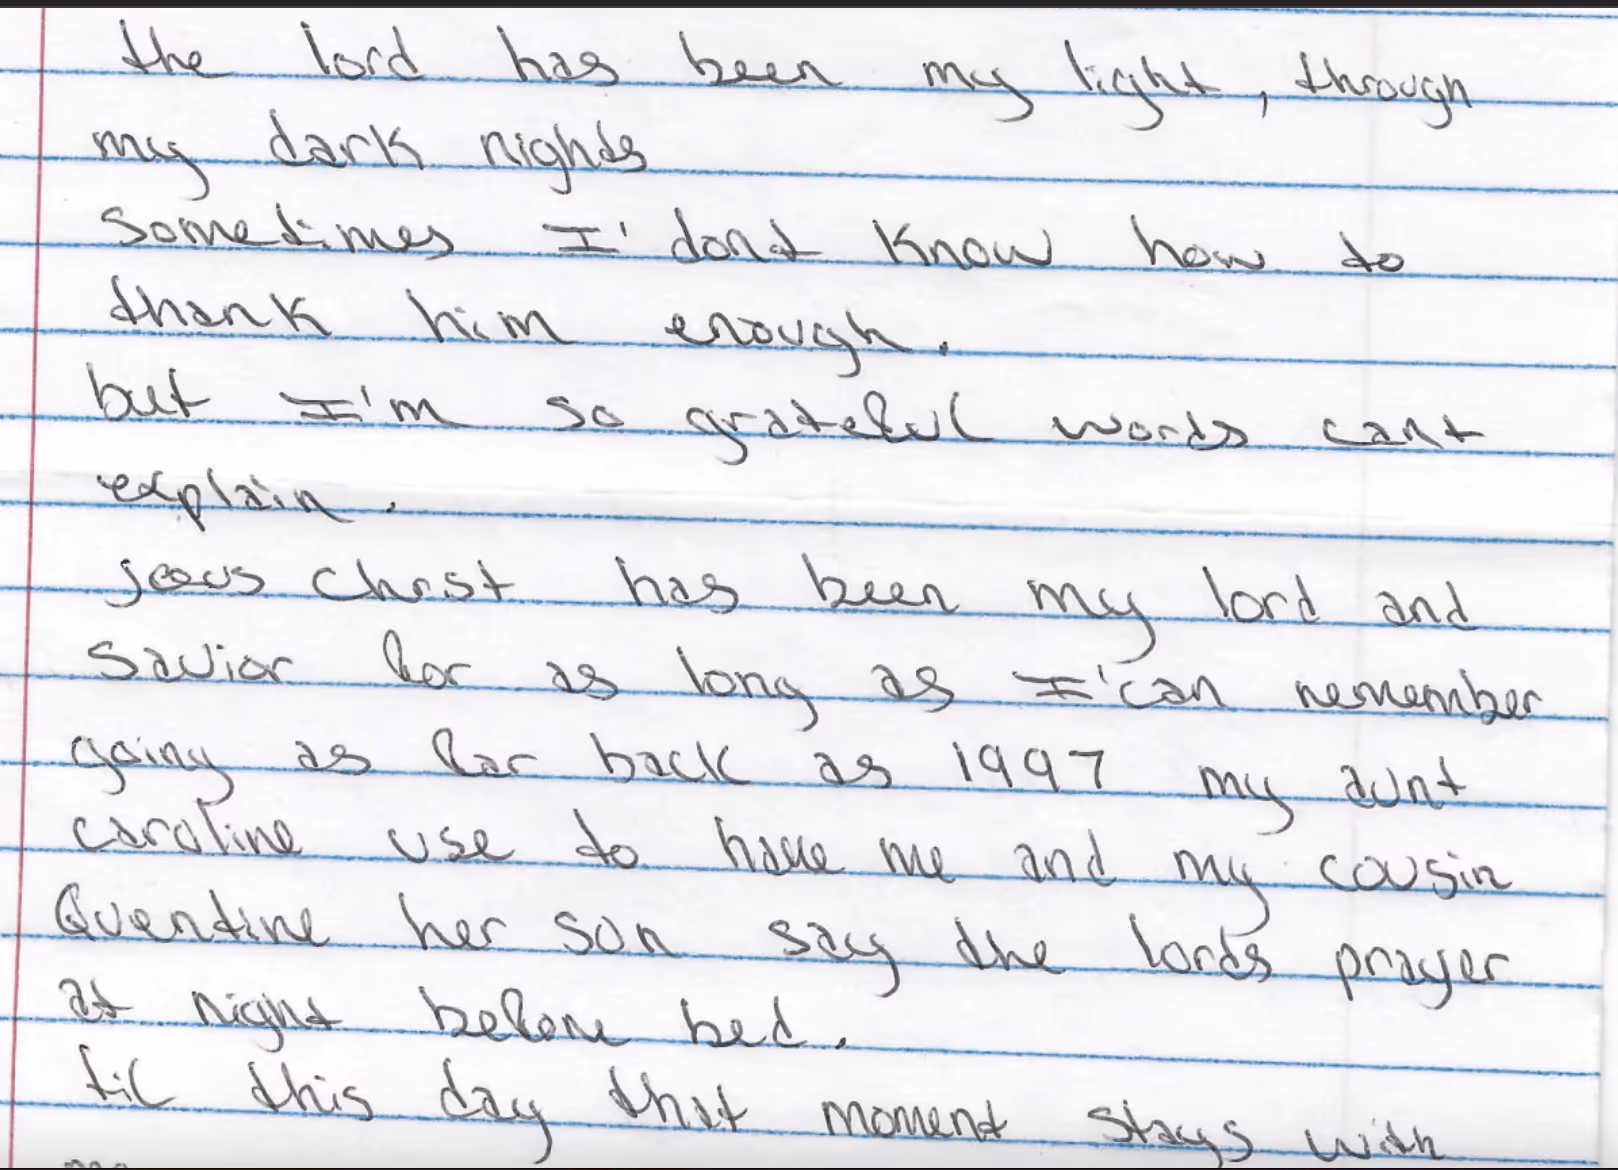 the lord has been my light, through
my dark nights
sometimes I' dont know how to
thank him enough.
but I'm so grateful words cant
explain.
jesus christ has been my lord and
savior for as long as I' can remember
going as far back as 1997 my aunt
caroline use to have me and my cousin
Quentine her son say the lords prayer
at night before bed.
til this day that moment stays with